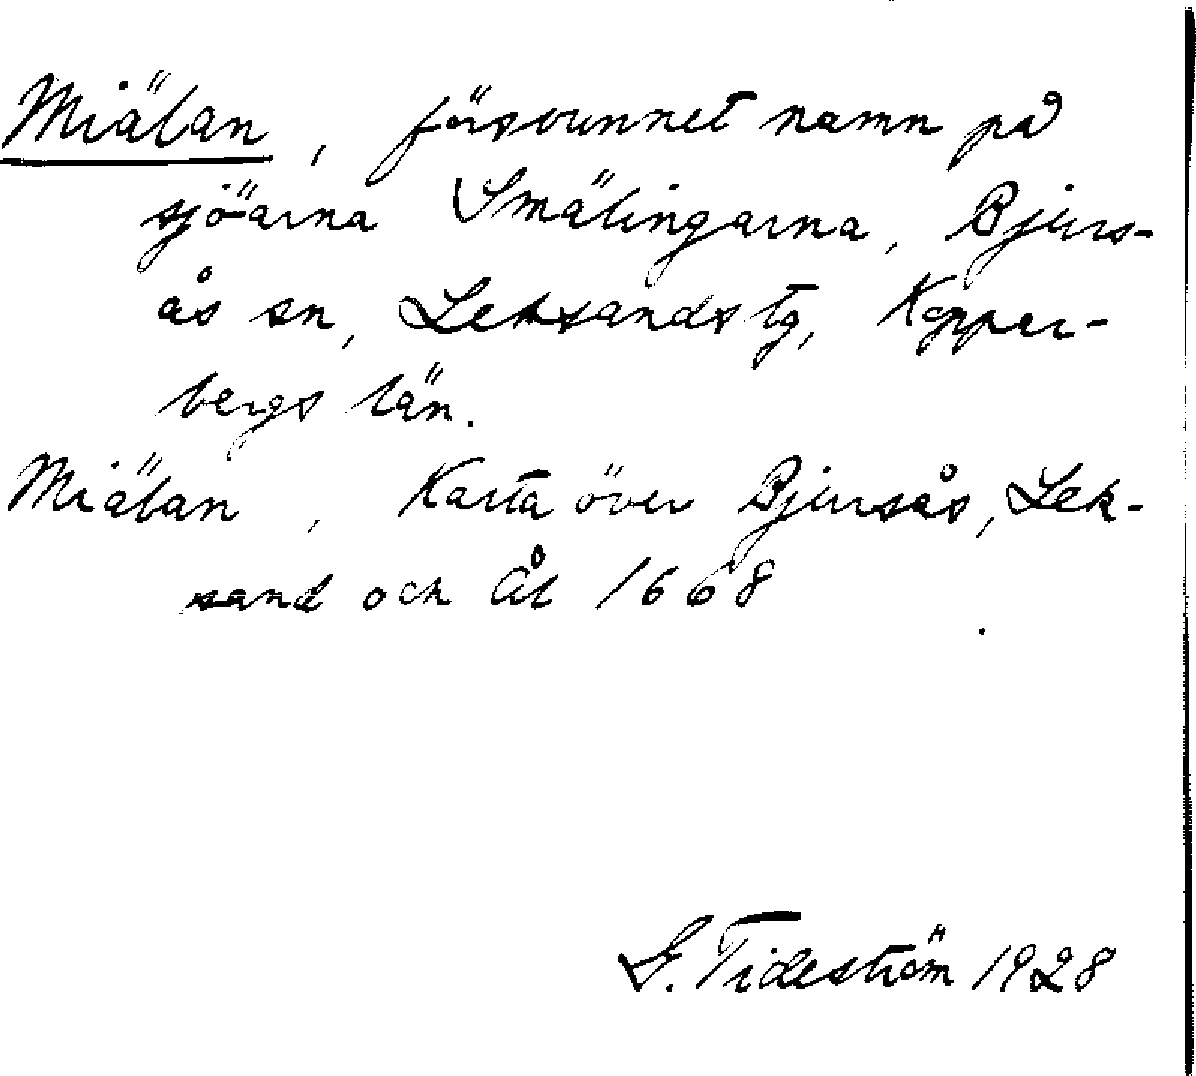 Miälan, försvunnet namn på
sjöarna Smälingarna, Bjurs-
ås sn, Leksands tg, Koppar-
bergs län.
Miälan, Karta över Bjursås, Lek-
sand och Ål 1668
G. Tideström 1928